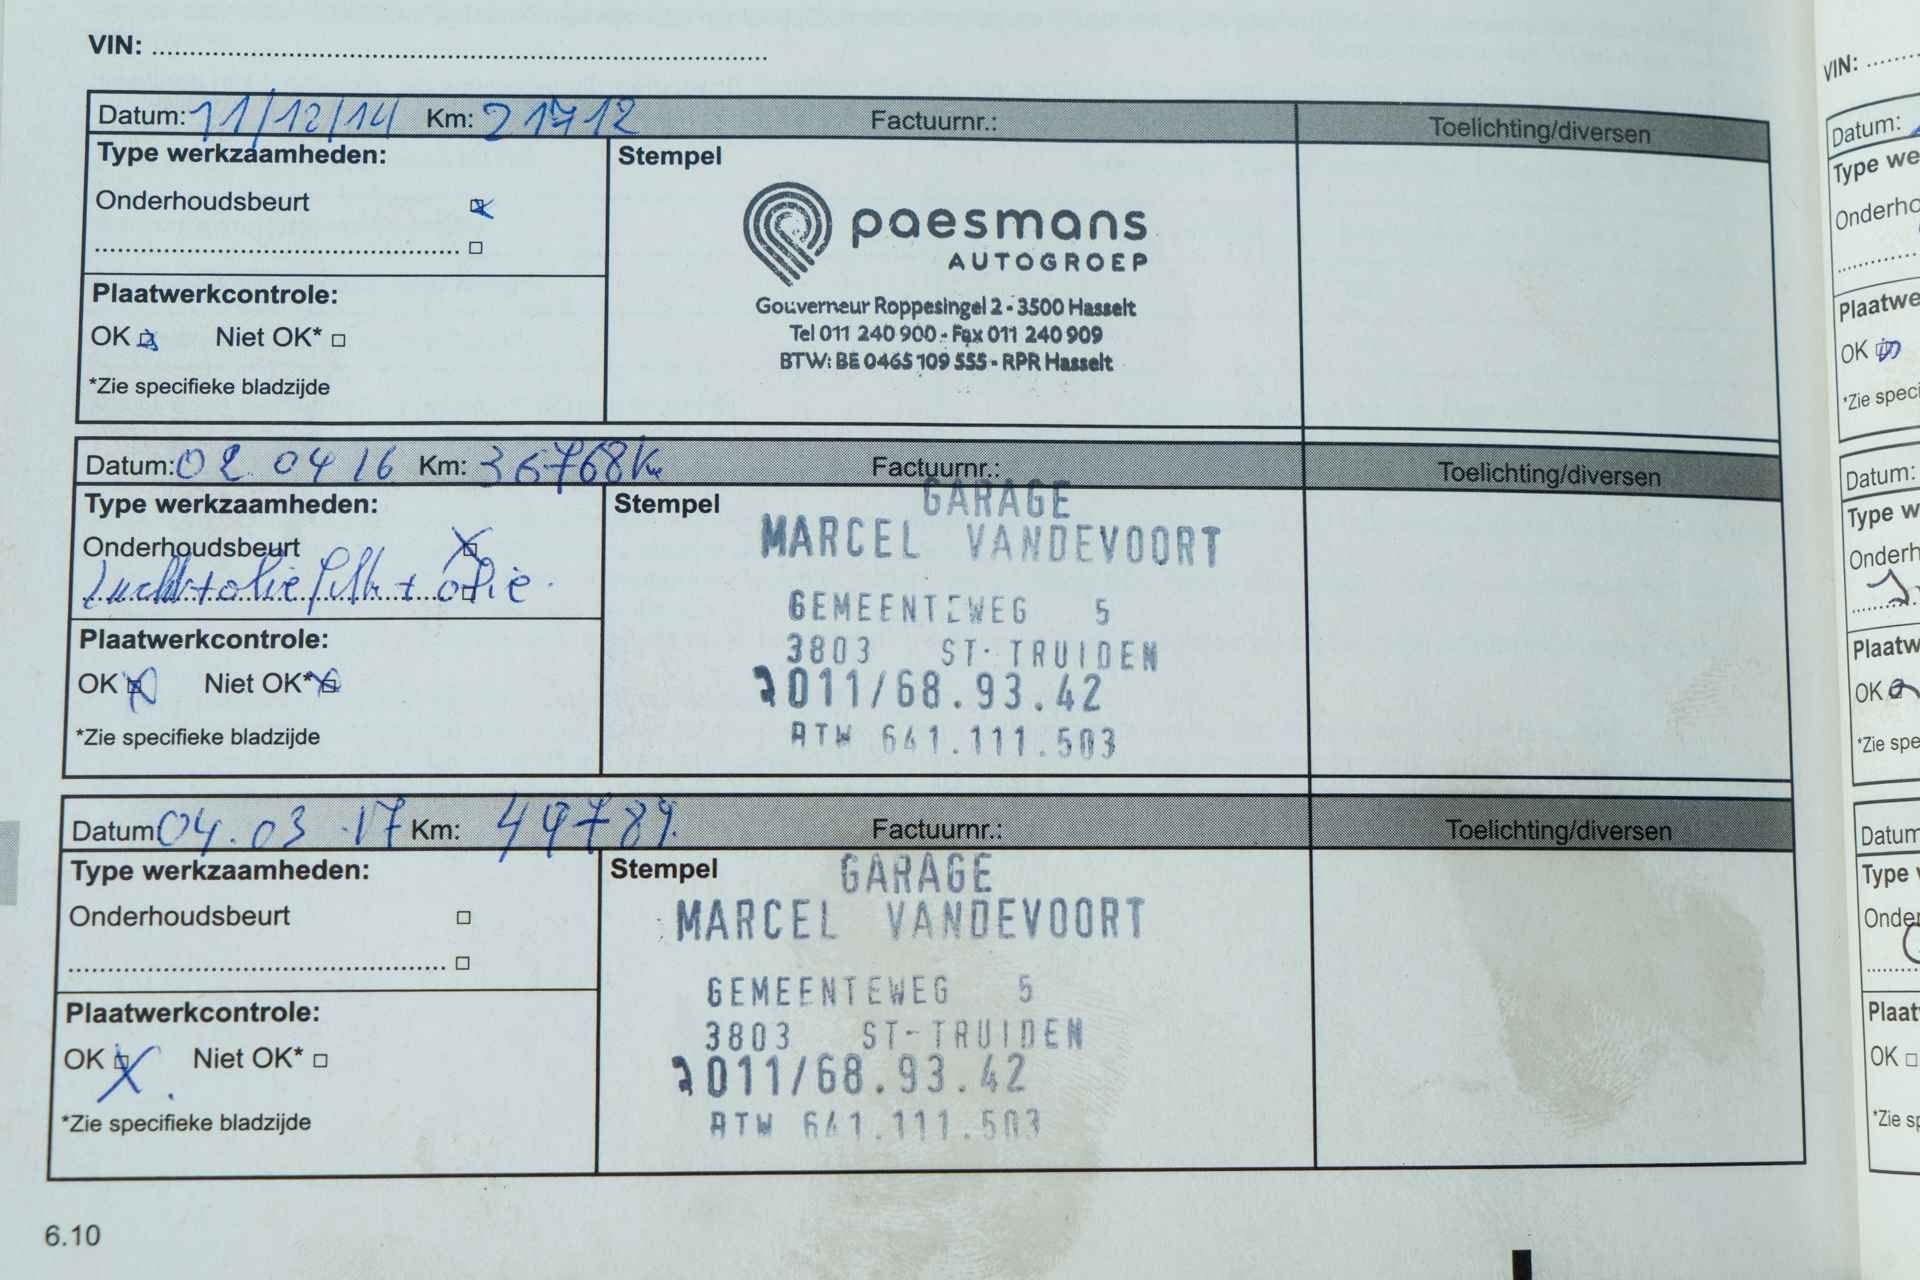 VIN: ..........
Datum: 11/12/14 Km: 21712 Factuurnr.: Toelichting/diversen
Type werkzaamheden: Stempel
Onderhoudsbeurt
paesmans
AUTOGROEP
Gouverneur Roppesingel 2 - 3500 Hasselt
Tel 011 240 900 - Fax 011 240 909
BTW: BE 0465 109 555 - RPR Hasselt
Plaatwerkcontrole:
OK Niet OK*
*Zie specifieke bladzijde
Datum: 02 04 16 Km: 36768 Km Factuurnr.: Toelichting/diversen
Type werkzaamheden: Stempel
Onderhoudsbeurt
Lucht + oliefilt + olie.
GARAGE
MARCEL VANDEVOORT
GEMEENTEWEG 5
3803 ST-TRUIDEN
011/68.93.42
BTW 641.111.503
Plaatwerkcontrole:
OK Niet OK*
*Zie specifieke bladzijde
Datum 04.03.17 Km: 49789. Factuurnr.: Toelichting/diversen
Type werkzaamheden: Stempel
Onderhoudsbeurt
GARAGE
MARCEL VANDEVOORT
GEMEENTEWEG 5
3803 ST-TRUIDEN
011/68.93.42
BTW 641.111.503
Plaatwerkcontrole:
OK Niet OK*
*Zie specifieke bladzijde
6.10
VIN: ......
Datum:
Type we
Onderho
Plaatwe
OK
*Zie speci
Datum:
Type w
Onderh
Plaatw
OK
*Zie spe
Datum
Type
Onder
Plaat
OK
*Zie sp